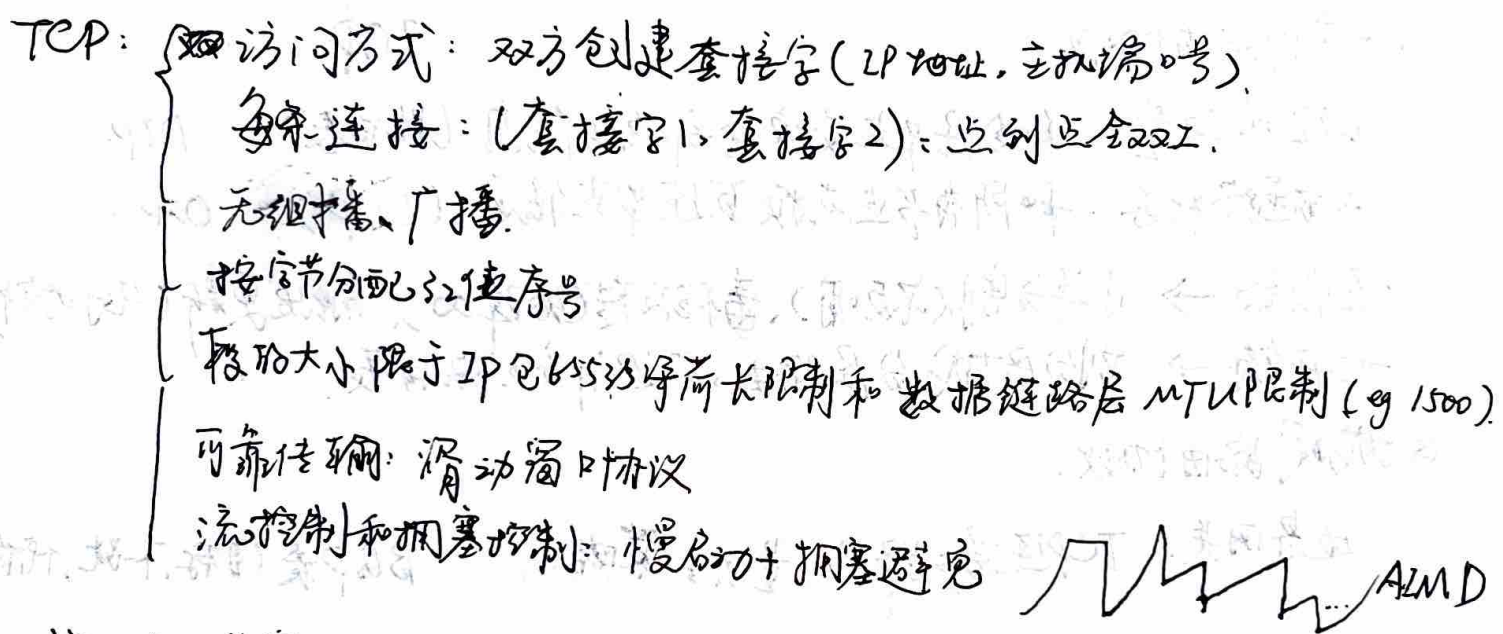 TCP: 访问方式: 双方创建套接字(IP地址, 主机端口号).
每条连接: (套接字1, 套接字2): 点到点全双工.
无组播、广播.
按字节分配32位序号
段的大小限于IP包65535净荷长限制和数据链路层MTU限制(eg 1500).
可靠传输: 滑动窗口协议
流控制和拥塞控制: 慢启动+拥塞避免 ... AIMD